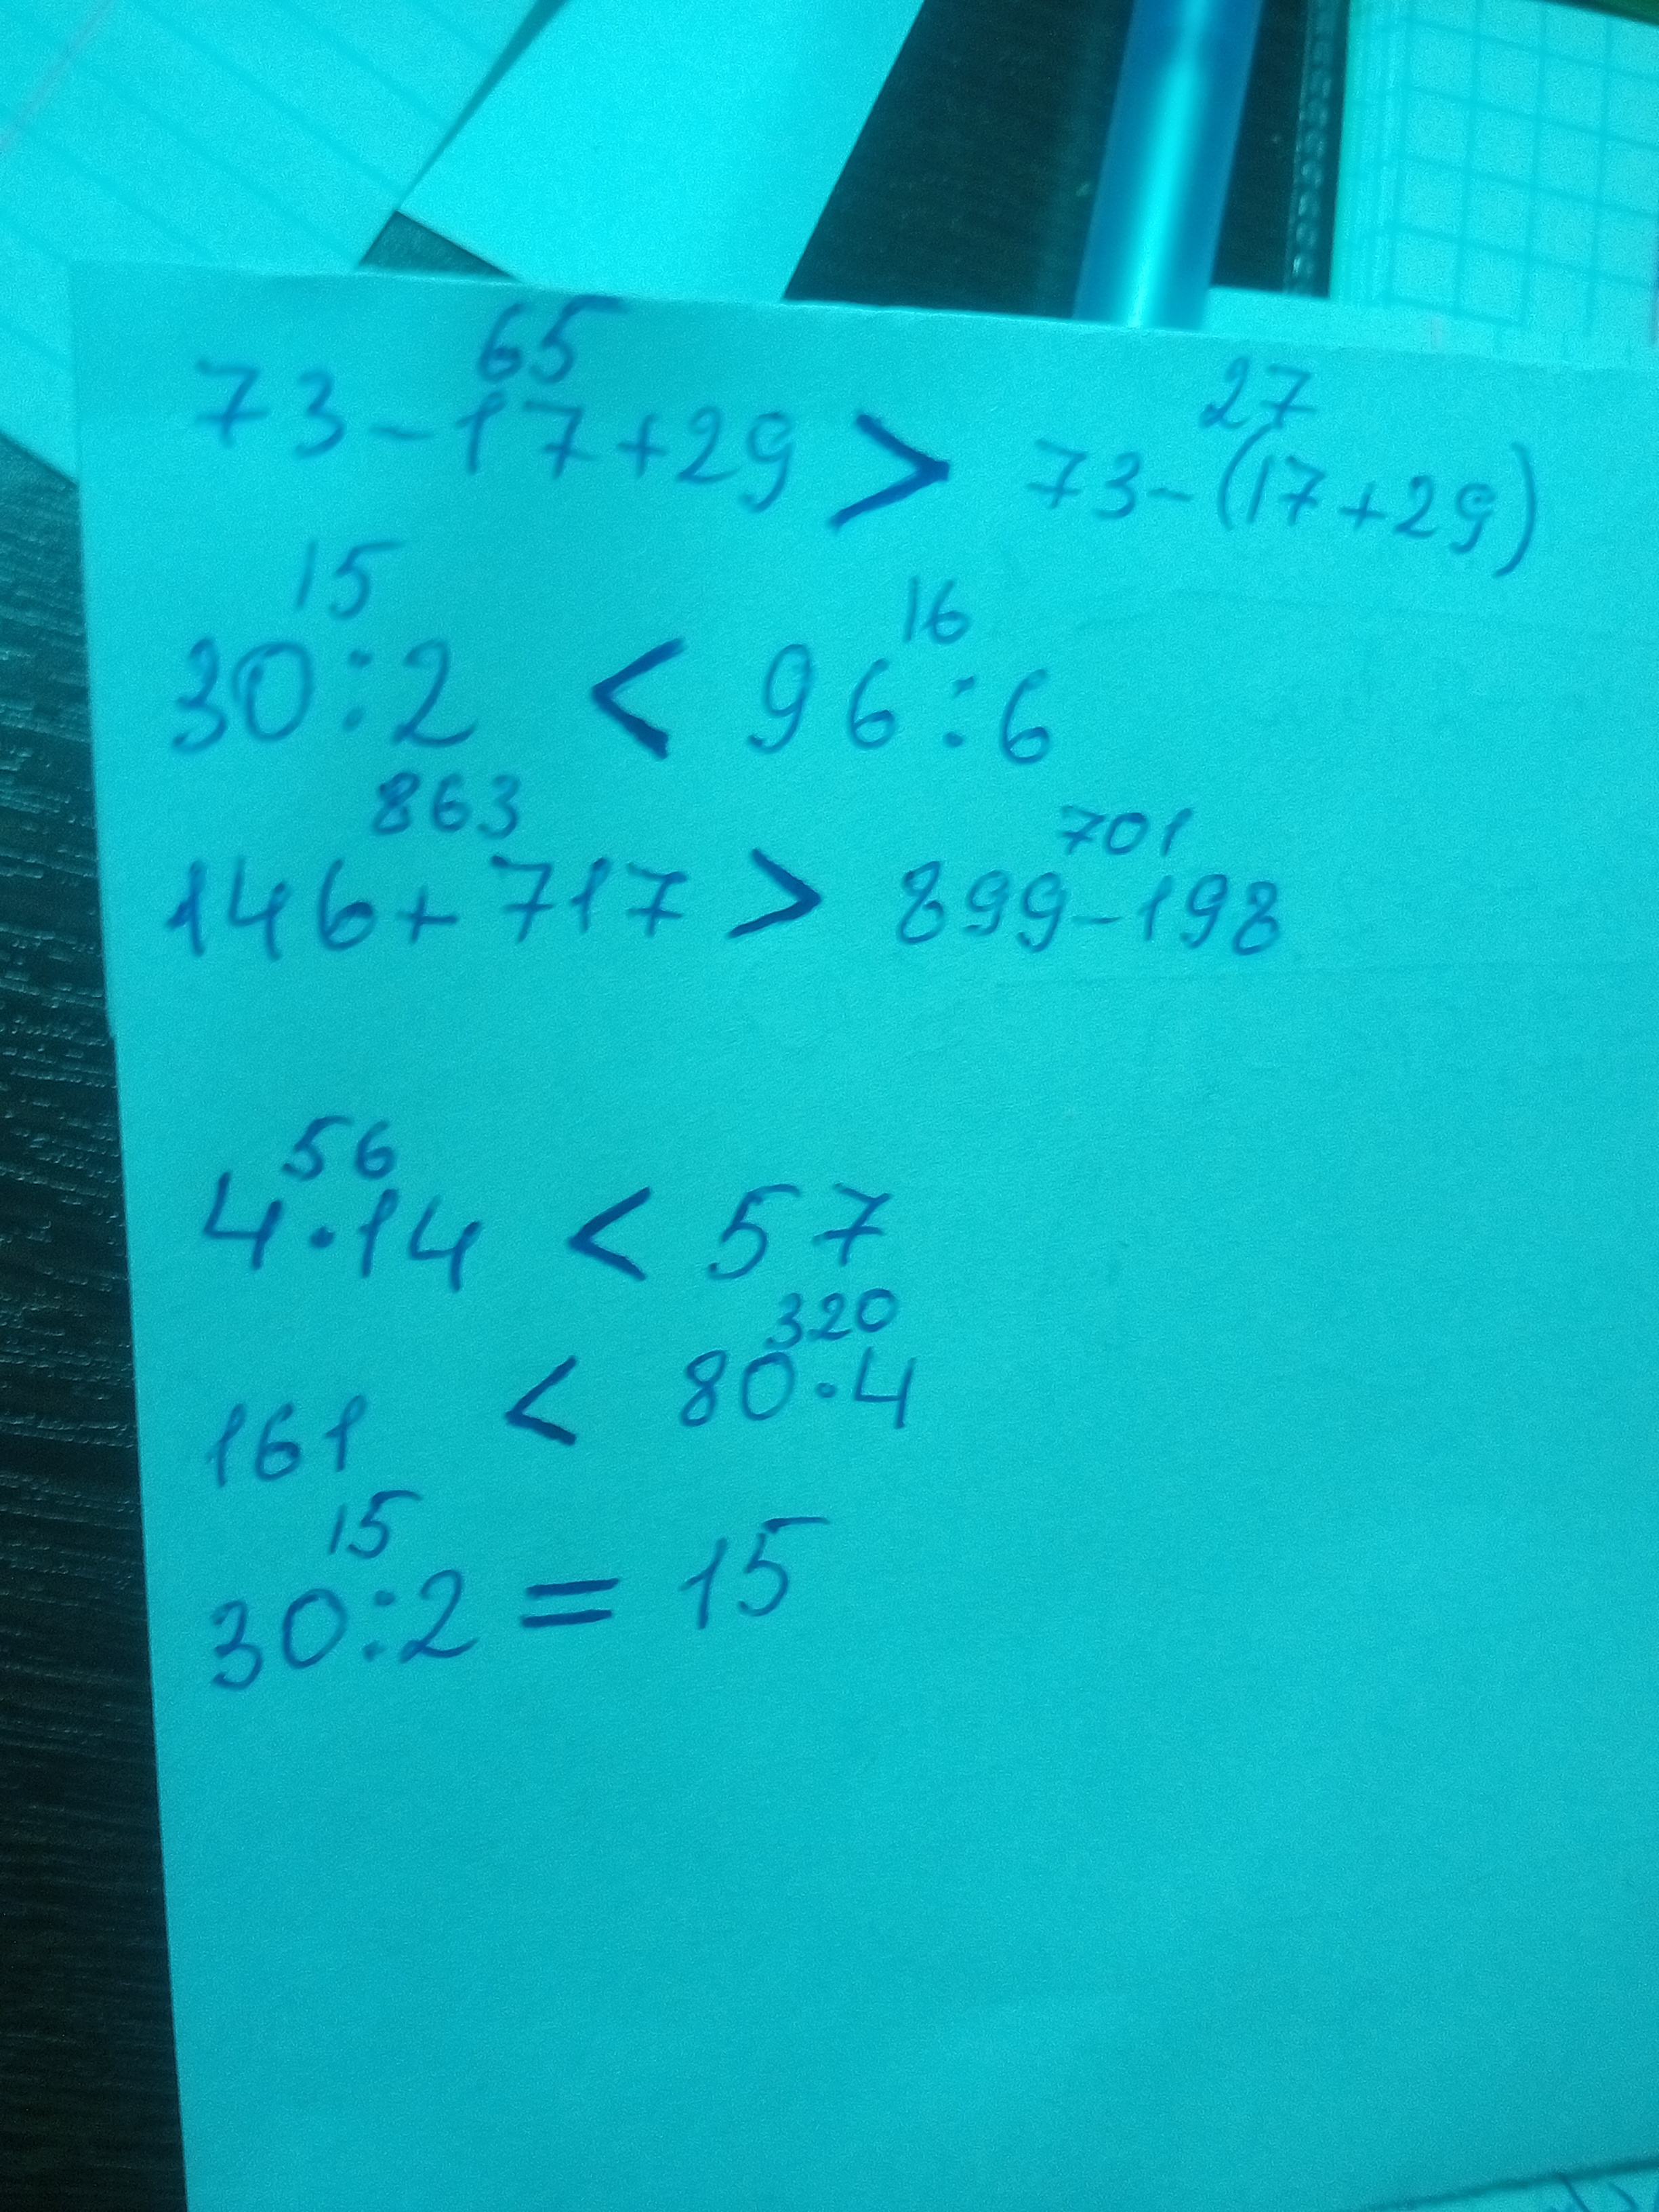 65 27
73-17+29 > 73-(17+29)
15 16
30:2 < 96:6
863 701
146+717 > 899-198
56
4·14 < 57
320
161 < 80·4
15
30:2 = 15